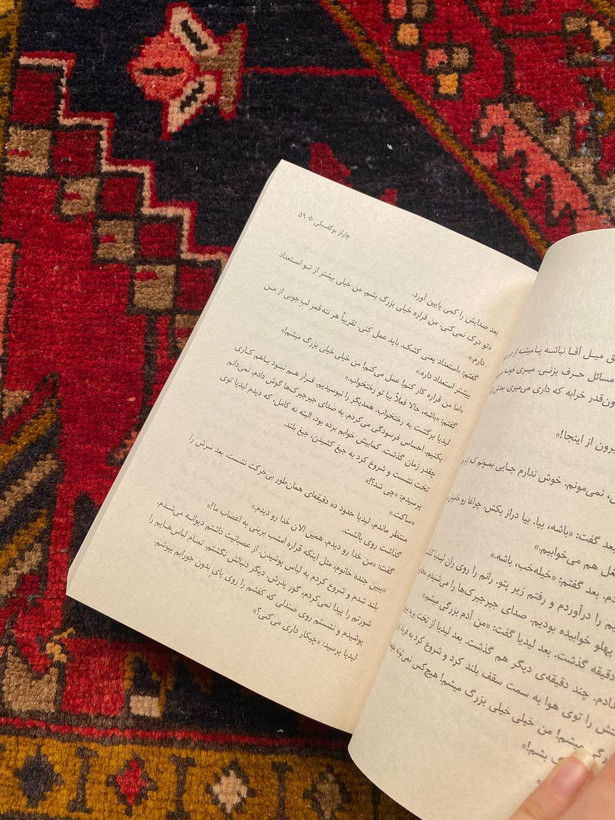 چارلز بوکفسکی ❖ ۵۹
بعد صدایش را کمی پایین آورد.
«تو درک نمی‌کنی. من قراره خیلی بزرگ بشم. من خیلی بیشتر از تو استعداد
دارم!»
گفتم: «استعداد یعنی کشک. باید عمل کنی. تقریباً هر ننه‌قمر لب جویی از من
بیشتر استعداد داره.»
«اما من قراره کار کنم! عمل می‌کنم! من خیلی خیلی بزرگ میشم!»
گفتم: «باشه، حالا فعلاً بیا تو رختخواب.»
لیدیا برگشت به رختخواب. همدیگر را نبوسیدیم. قرار هم نبود با هم کاری
بکنیم. احساس فرسودگی می‌کردم. به صدای جیرجیرک‌ها گوش دادم. نمی‌دانم
چقدر زمان گذشت. کمابیش خوابم برده بود، البته نه کامل، که دیدم لیدیا توی
تخت نشست و شروع کرد به جیغ کشیدن، جیغ بلند.
پرسیدم: «چی شد؟!»
«ساکت.»
منتظر ماندم. لیدیا حدود ده دقیقه‌ای همان‌طور بی‌حرکت نشست. بعد سرش را
گذاشت روی بالشت.
گفت: «من خدا رو دیدم. همین الان خدا رو دیدم.»
«ببین جنده خانوم، مثل اینکه قراره امشب برینی به اعصاب ما!»
بلند شدم و شروع کردم به لباس پوشیدن. از عصبانیت داشتم دیوانه می‌شدم.
شورتم را پیدا نمی‌کردم. گور پدرش. دیگر دنبالش نگشتم. تمام لباس‌هایم را
پوشیدم و نشستم روی صندلی که کفشم را روی پای بدون جورابم بپوشم.
لیدیا پرسید: «چیکار داری می‌کنی؟»
میل آقا نباشه یا مثلاً از در
مسائل حرف بزنی، میری خونه
اون‌قدر خرابه که داری می‌میری. یعنی
بیرون از اینجا!»
نمی‌مونم. خوش ندارم جایی بمونم که
بعد گفت: «باشه، بیا. بیا دراز بکش. چراغا رو خاموش
بغل هم می‌خوابیم.»
بعد گفتم: «خیله‌خب، باشه.»
را درآوردم و رفتم زیر پتو. رانم را روی ران لیدیا
پهلو خوابیده بودیم. صدای جیرجیرک‌ها را می‌شنیدم.
دقیقه گذشت. بعد لیدیا گفت: «من آدم بزرگی میشم.»
ندادم. چند دقیقه‌ی دیگر هم گذشت. بعد لیدیا از تخت
توی هوا به سمت سقف بلند کرد و شروع کرد به
بزرگی میشم! من خیلی خیلی بزرگ میشم! هیچ‌کس نمی‌دونه
بشم!»